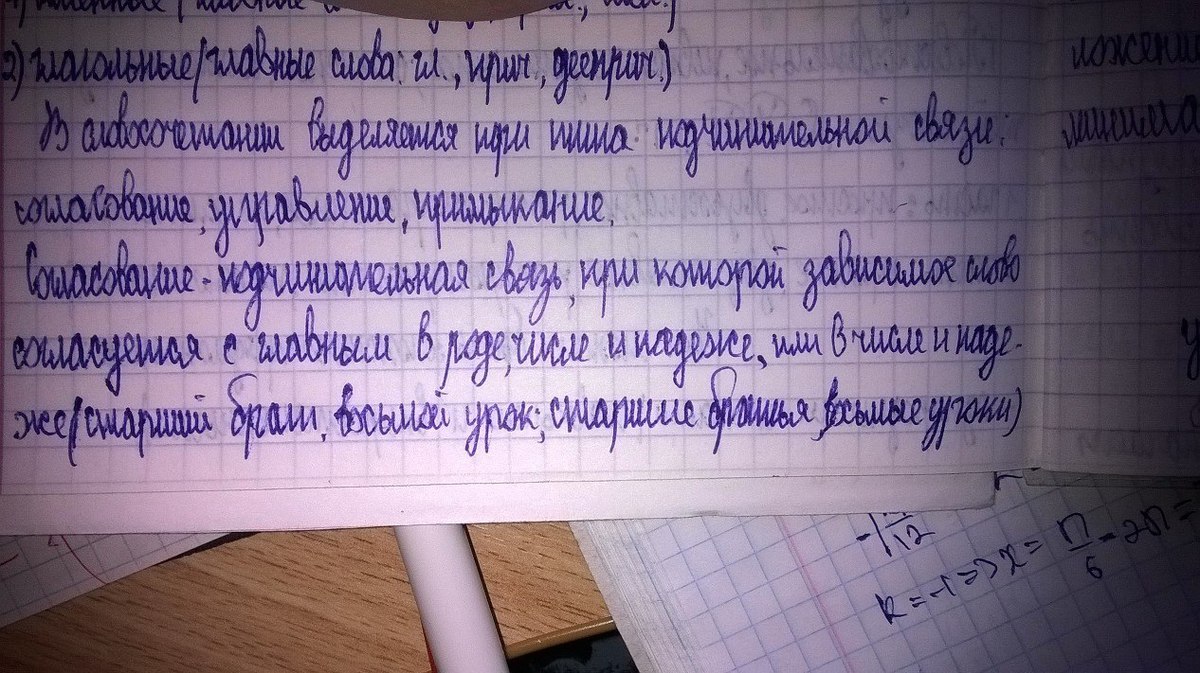 2) глагольные (главные слова: гл., прич., дееприч.)
В словосочетании выделяется три типа подчинительной связи:
согласование, управление, примыкание.
Согласование - подчинительная связь, при которой зависимое слово
согласуется с главным в роде, числе и падеже, или в числе и паде-
же (старший брат, восьмой урок; старшие братья, восьмые уроки)
12
k = -1 => x = П/6 - 2П =